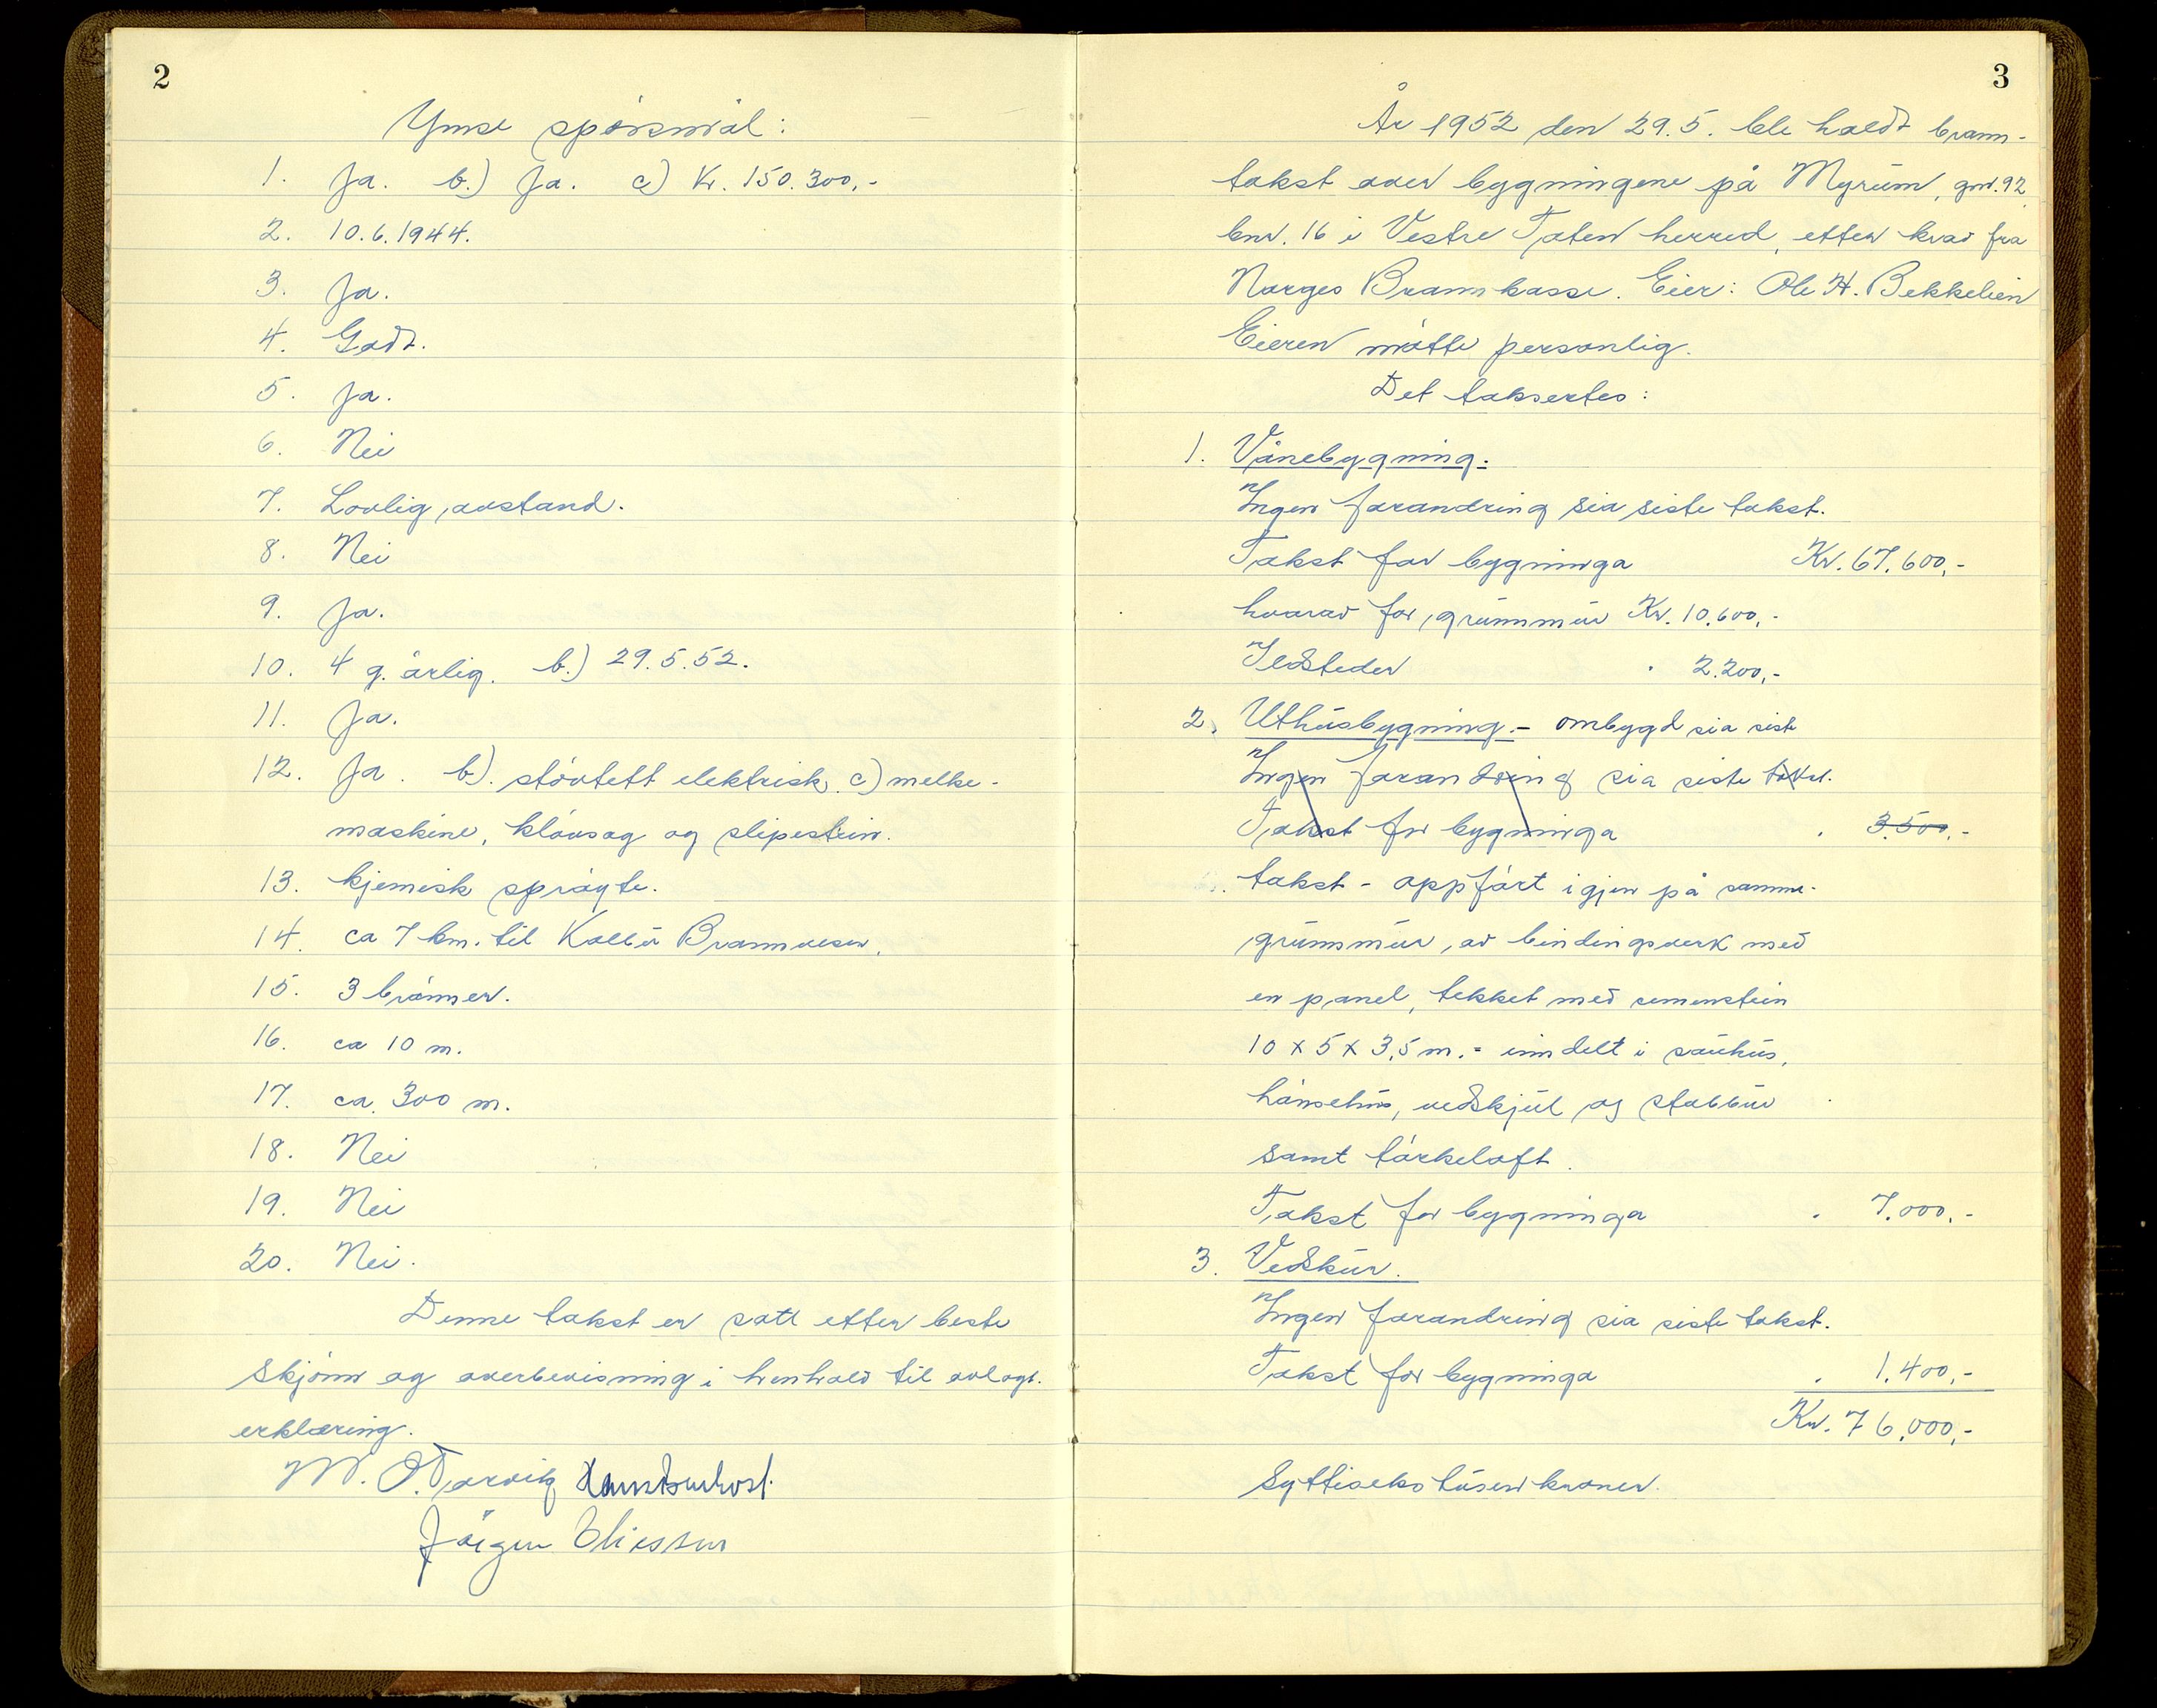 2
Ymse spörsmål:
1. Ja. b.) Ja. c) Kr. 150.300,-
2. 10.6.1944.
3. Ja.
4. Godt.
5. Ja.
6. Nei
7. Lovlig avstand.
8. Nei
9. Ja.
10. 4 g. årlig. b.) 29.5.52.
11. Ja.
12. Ja. b). stövtett elektrisk. c) melke-
maskine, klövsag og slipestein.
13. kjemisk spröyte.
14. ca 7 km. til Kolbu Brannvesen.
15. 3 brönner.
16. ca 10 m.
17. ca. 300 m.
18. Nei
19. Nei
20. Nei.
Denne takst er satt etter beste
skjönn og overbevisning i henhold til avlagt
erklæring.
M. O. Torvik
Jörgen Eliessen
3
År 1952 den 29.5. ble holdt brann-
takst over bygningene på Myrum, gnr. 92,
bnr. 16 i Vestre Toten herred, etter krav fra
Norges Brannkasse. Eier: Ole H. Bekkelien
Eieren mötte personlig.
Det taksertes:
1. Vånebygning:
Ingen forandring sia siste takst.
Takst for bygninga Kr. 67.600,-
hvorav for grunnmur Kr. 10.600,-
Ildsteder " 2.200,-
2. Uthusbygning.- ombygd sia siste
Ingen forandring sia siste takst.
Takst for bygninga " 3.500,-
takst - oppfört igjen på samme
grunnmur, av bindingsverk med
en panel, tekket med sementstein
10 x 5 x 3,5 m. - inndelt i sauhus,
hönsehus, vedskjul og stabbur
samt törkeloft.
Takst for bygninga " 7.000,-
3. Vedskur.
Ingen forandring sia siste takst.
Takst for bygninga " 1.400,-
Kr. 76.000,-
Syttiseks tusen kroner.